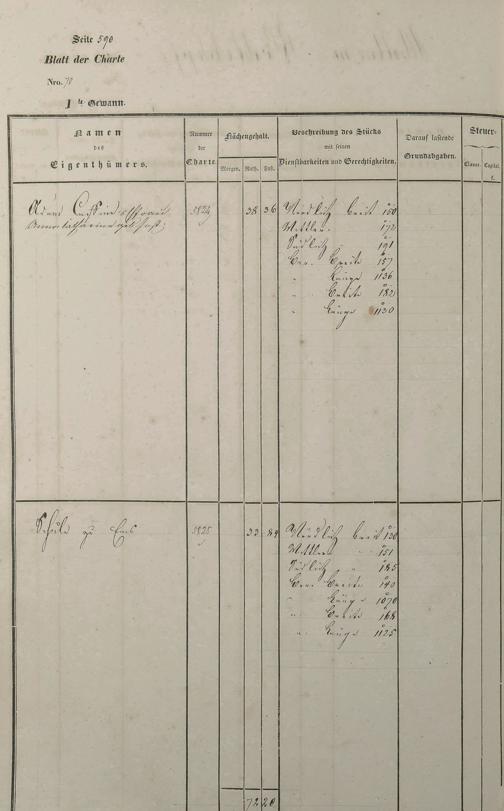 Seite 590
Blatt der Charte
Nro. 78
1te Gewann.
Namen des Eigenthümers.
Nummer der Charte.
Flächengehalt.
Morgen. Rth. Fuß.
Beschreibung des Stücks mit seinen Dienstbarkeiten und Gerechtigkeiten.
Darauf lastende Grundabgaben.
Steuer-
Classe. Capital.
f.
Adam
Anna Catharina geb.
5824 38 36 Nördlich breit 150
Mittlere " 172
Südlich " 191
Ber. Breite 157
" Länge 1136
" Breite 182
" Länge 1130
Schule zu Ems 5825 33 84 Nördlich breit 120
Mittlere " 151
Südlich " 185
Ber. Breite 140
" Länge 1070
" Breite 168
" Länge 1125
72 20